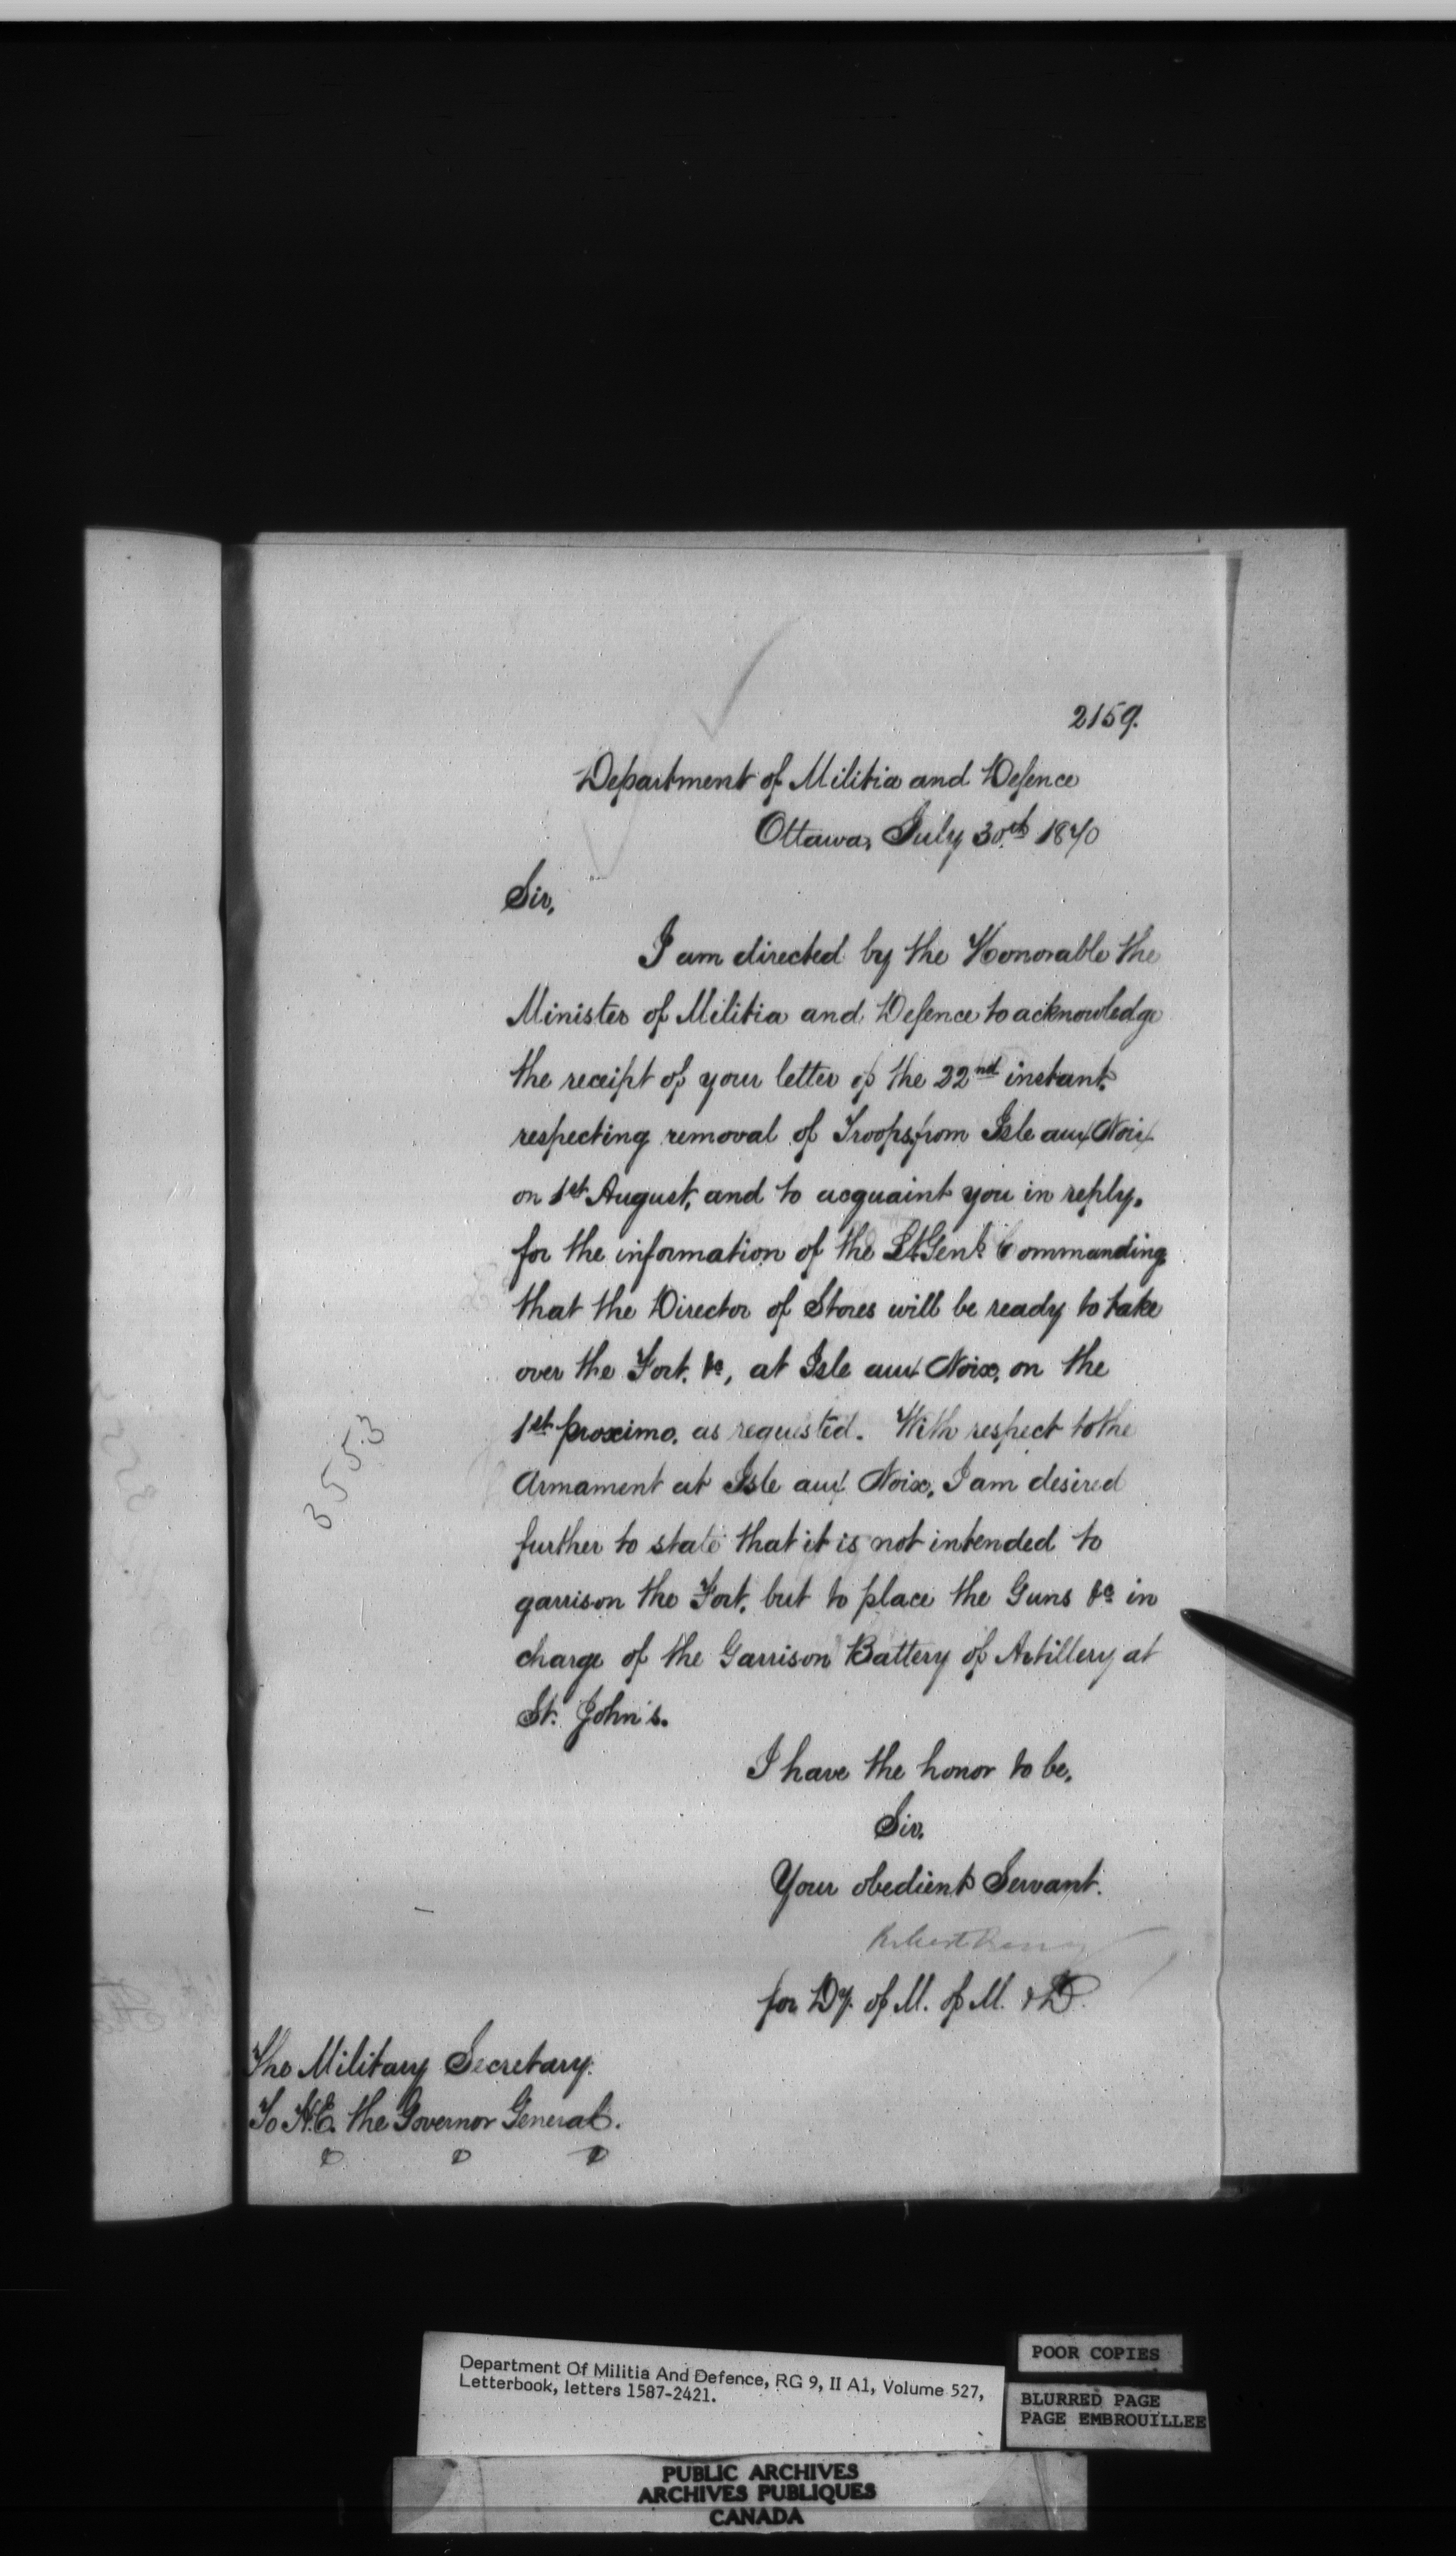 2159.
Department of Militia and Defence
Ottawa, July 30th 1870
Sir,
I am directed by the Honorable the
Minister of Militia and Defence to acknowledge
the receipt of your letter of the 22nd instant.
respecting removal of Troops from Isle aux Noix
on 1st August, and to acquaint you in reply,
for the information of the Lt. Genl. Commanding
that the Director of Stores will be ready to take
over the Fort. &c, at Isle aux Noix, on the
1st proximo, as requested. With respect to the
Armament at Isle aux Noix, I am desired
further to state that it is not intended to
garrison the Fort, but to place the Guns &c in
charge of the Garrison Battery of Artillery at
St. John's.
I have the honor to be,
Sir,
Your obedient Servant.
Robert
for Dy. of M. of M. & D.
The Military Secretary.
To H.E. the Governor General.
3553
Department Of Militia And Defence, RG 9, II A1, Volume 527,
Letterbook, letters 1587-2421.
POOR COPIES
BLURRED PAGE
PAGE EMBROUILLEE
PUBLIC ARCHIVES
ARCHIVES PUBLIQUES
CANADA